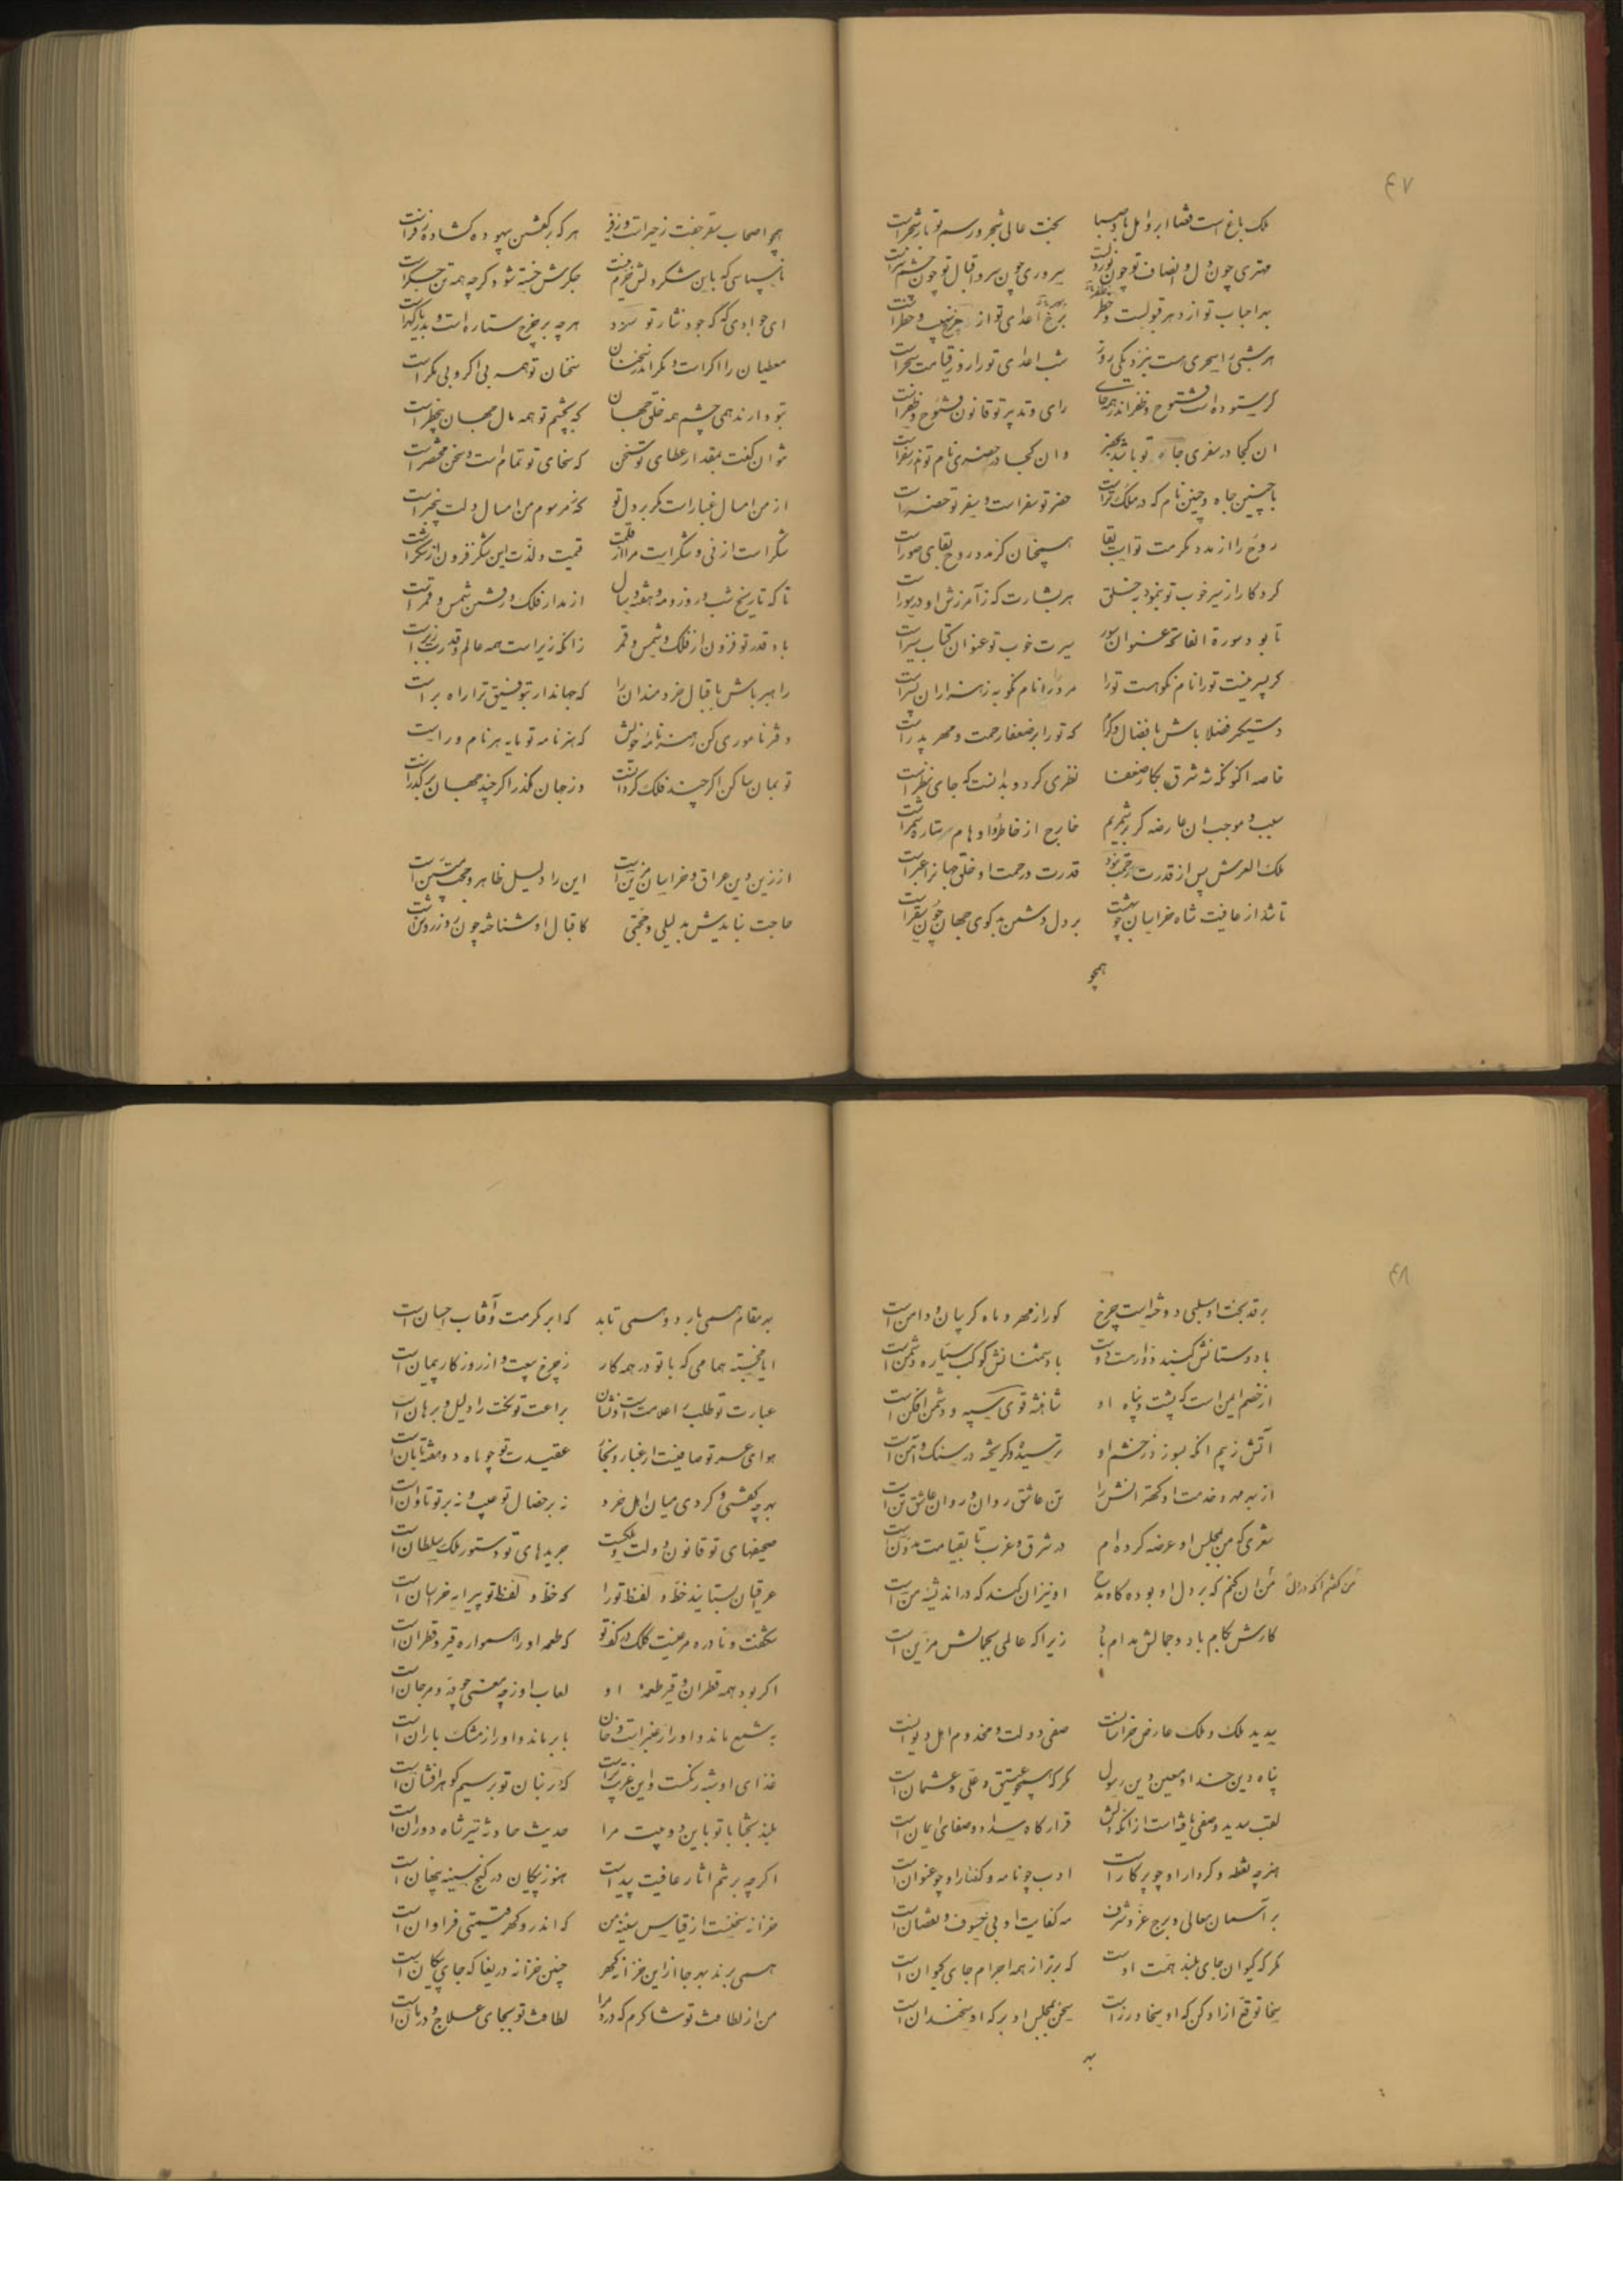 ۴۷
ملک باغ است و قضا ابر و امل باد صبا بخت عالی شجر و رسم تو بار شجر است
مهتری چون دل و انصاف تو چون نور دلست سروری چون سر و اقبال تو چون چشم سر است
بر احباب تو از دهر قبولست و خطر برخ اعدای تو از چرخ نهیب و خطر است
هر شبی را سحری هست بنزدیکی روز شب اعدای تو را روز قیامت سحر است
گر ستوده است فتوح و ظفر اندر همه جای رای و تدبیر تو قانون فتوح و ظفر است
ان کجا در سفری جاه تو باشد بحضر وان کجا در حضری نام تو اندر سفر است
با چنین جاه و چنین نام که در ملک تراست حضر تو سفر است و سفر تو حضر است
روح را از مدد مکرمت تو است بقا همچنان کز مدد روح بقای صور است
کردگار از سیر خوب تو بنمود بخلق هر بشارت که ز آمرزش او در سور است
تا بود سورة الفاتحه عنوان سور سیرت خوب تو عنوان کتاب سیر است
گر پسر نیست تو را نام نکو هست تو را مرد را نام نکو به ز هزاران پسر است
دستگیر فضلا باش بافضال و کرم که تو را بر ضعفا رحمت و مهر پدر است
خاصه اکنون که شه شرق بکار ضعفا نظری کرد و بدانست که جای نظر است
سبب و موجب ان عارضه گر برشمریم خارج از خاطر و اوهام ستاره شمر است
ملک العرش پس از قدرت رحمت بنمود قدرت و رحمت او خلق جهان را عبر است
تا شد از عافیت شاه خراسان چو بهشت بر دل دشمن بدگوی جهان چون سقر است
همچو
همچو اصحاب سقر جفت زحیر است و زفیر هر که بر گفتن بیهوده گشاده زفر است
ناسپاسی که باین شکر دلش خرم نیست جگرش خسته شود گرچه همه تن جگر است
ای جوادی که گه جود نثار تو سزد هر چه بر چرخ ستاره است و بدریا گهر است
معطیان را اگر است و مگر اندر سخنان سخنان تو همه بی اگر و بی مگر است
بتو دارند همی چشم همه خلق جهان که بچشم تو همه مال جهان بیخطر است
نتوان گفت بمقدار عطای تو سخن که سخای تو تمام است و سخن مختصر است
از من امسال غبار است مگر بر دل تو که ز مرسوم من امسال دلت بیخبر است
شکر است از نی و شکر است مرا از قلمت قیمت و لذت این شکر فزون از شکر است
تا که تاریخ شب و روز و مه و هفته و سال از مدار فلک و رفتن شمس و قمر است
باد قدر تو فزون از فلک و شمس و قمر زانکه زیر است همه عالم و قدرت زبر است
راهبر باش باقبال خردمندان را که جهاندار بتوفیق ترا راه بر است
دفتر نامه‌وری کن هنر نامه خویش که هنرنامه تو مایه هر نام ور است
تو بمان ساکن اگر چند فلک گردانست وز جهان مگذر اگر چند جهان برگذر است
از زین دین عراق و خراسان مزین است این را دلیل ظاهر و حجت مبین است
حاجت نیایدش بدلیلی و حجتی کاقبال او شناخته چون روز روشن است
۴۸
بر قد بخت او سلبی دوخته است چرخ کورا ز مهر و ماه گریبان و دامن است
با دوستانش گنبد دوار دوست است با دشمنانش کوکب سیاره دشمن است
از خصم ایمن است که پشت و پناه او شاهنشه قوی سپه و دشمن افکن است
آتش ز بیم آنکه بسوزد ز خشم او ترسیده و گریخته در سنگ و آهن است
از بهر مهر و خدمت او کهترانش را تن عاشق روان و روان عاشق تن است
شعری که من بمجلس او عرضه کرده ام در شرق و غرب تا بقیامت مدون است
من ان کنم که بر دل او بوده گاه مدح او نیز ان کند که در اندیشه من است
کارش بکام باد و جمالش مدام باد زیرا که عالمی بجمالش مزین است
سدید ملک و ملک عارض خراسانست صفی دولت و مخدوم اهل دیوانست
پناه دین خدا و معین دین رسول مگر که همچو عتیق و علی و عثمان است
لقب سدید و صفی یافته است از آنکه دلش قرارگاه سداد و صفای ایمان است
هنر چه نقطه و کردار او چو پرگار است ادب چو نامه و گفتار او چو عنوان است
بر آسمان معالی و برج عز و شرف مه کفایت او بی خسوف و نقصان است
مگر که کیوان جای بلند همت اوست که برتر از همه اجرام جای کیوان است
سخا توقع ازاو کن که او سخاورز است سخن بمجلس او بر که او سخندان است
به
بهر مقام همی بارد و همی تابد که ابر مکرمت و آفتاب احسان است
ایا خجسته همامی که با تو در همه کار ز چرخ بیعت و از روزگار پیمان است
عبارت تو طلب را علامت است و نشان براعت تو بخت را دلیل و برهان است
هوای عهد تو صافیست از غبار و بخار عقیدت تو چو ماه دو هفته تابان است
بهر چه گفتی و کردی میان اهل خرد نه بر خصال تو عیب و نه بر تو تاوان است
صحیفهای تو قانون دولت و ملکست جریدهای تو دستور ملک سلطان است
عراقیان بستایند خط و لفظ تو را که خط و لفظ تو پیرایه خراسان است
شگفت و نادره مرغیست کلک در کف تو که طعمه او را همواره قیر و قطران است
اگر بود همه قطران و قیر طعمه او لعاب او ز چه معنی چو در و مرجان است
به شمع ماند و او را ز عنبر است دخان بابر ماند و او را ز مشک باران است
غذای او شبه رنگست و این غریبتر است که در بنان تو بر سیم گوهر افشان است
بلند بختا با تو باین دو بیت مرا حدیث حادثه تیر شاه دوران است
اگر چه بر تنم اثار عافیت پیداست هنوز پیکان در گنج سینه پنهان است
خزانه سخنست از قیاس سینه من که اندرو گهر قیمتی فراوان است
همی برند بهر جا از این خزانه گهر چنین خزانه دریغا که جای پیکان است
من از لطافت تو شاکرم که درد مرا لطافت تو بجای علاج و درمان است